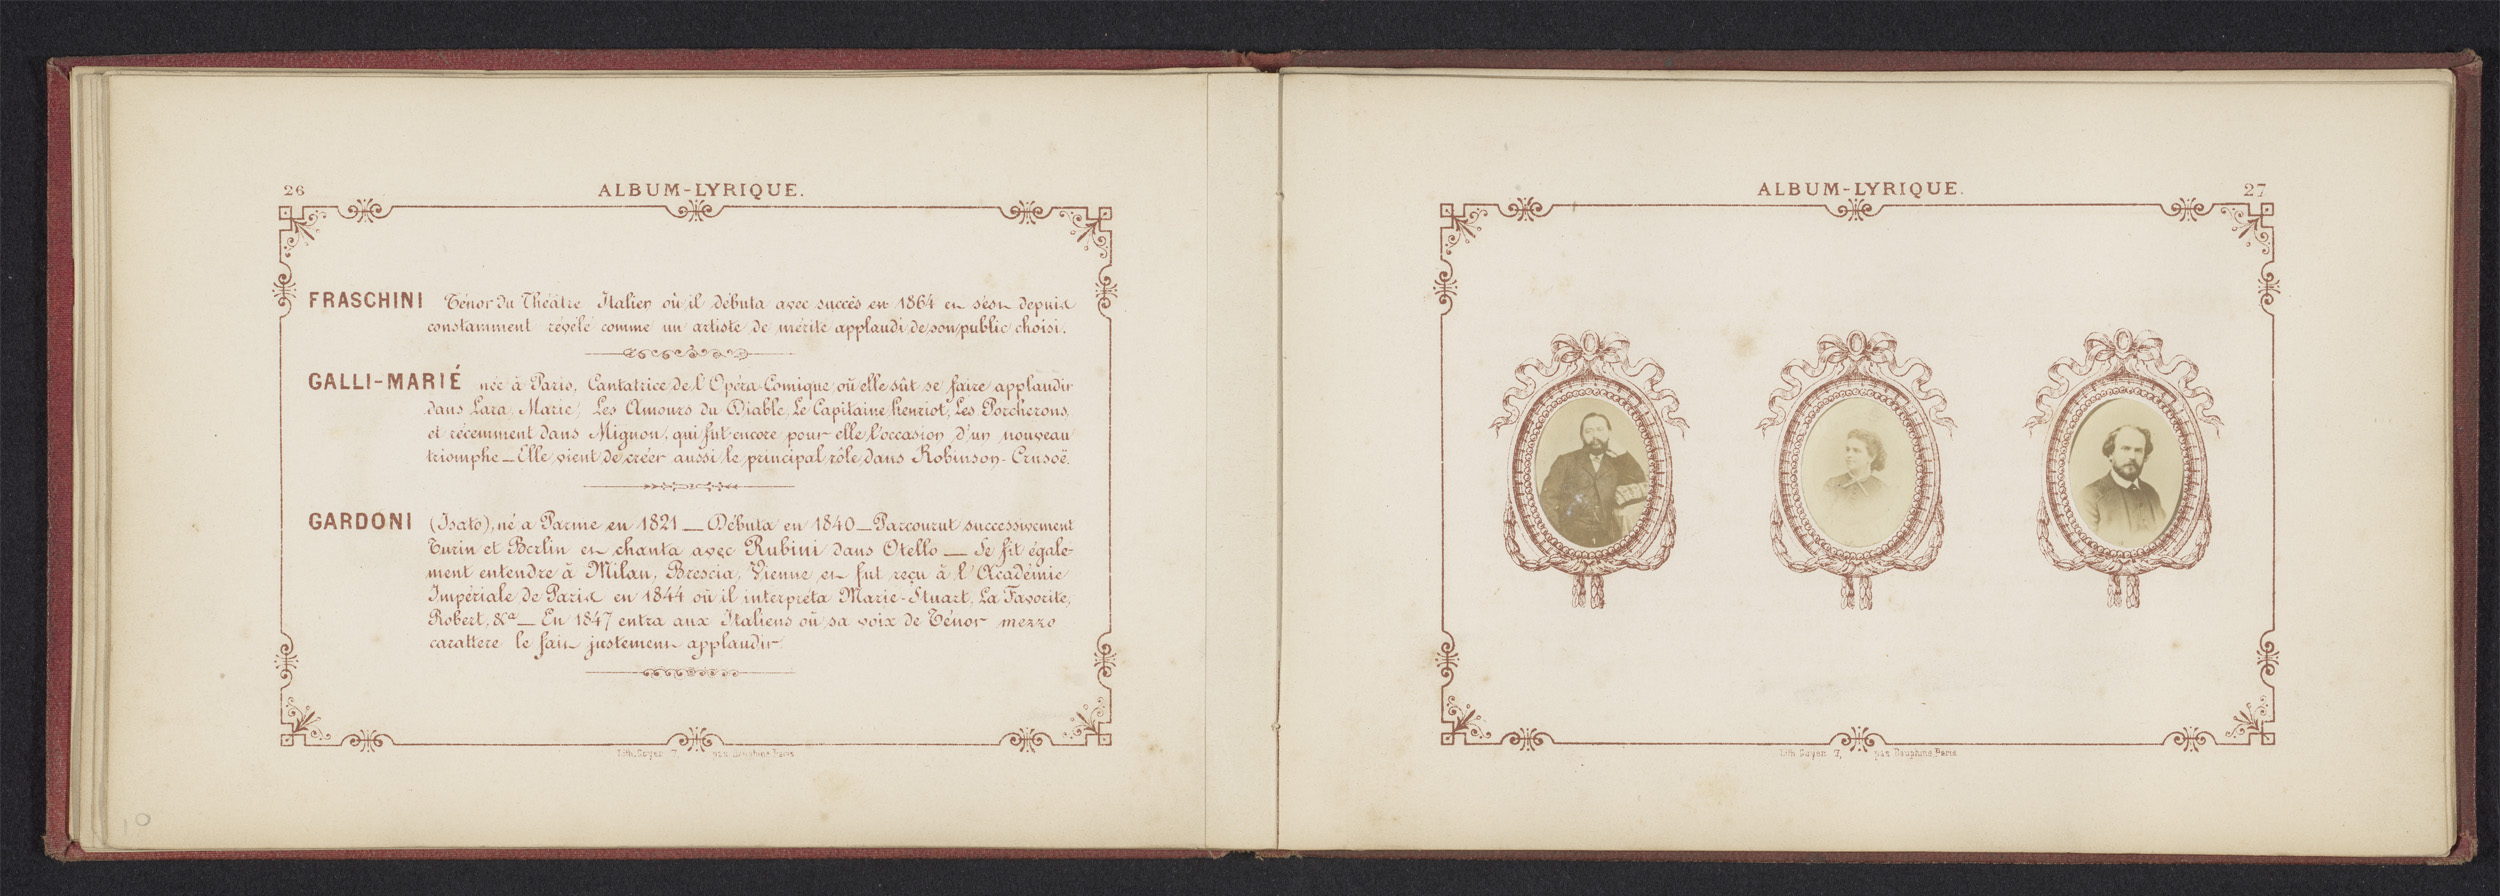 26
ALBUM-LYRIQUE.
FRASCHINI Ténor du Théâtre Italien où il débuta avec succès en 1864 et s'est depuis
constamment révélé comme un artiste de mérite applaudi de son public choisi.
GALLI-MARIÉ née à Paris, Cantatrice de l'Opéra-Comique où elle sût se faire applaudir
dans Lara, Marie, Les Amours du Diable, Le Capitaine henriot, Les Porcherons,
et récemment dans Mignon, qui fut encore pour elle l'occasion d'un nouveau
triomphe — Elle vient de créer aussi le principal rôle dans Robinson-Crusoë.
GARDONI (Isato), né a Parme en 1821 — Débuta en 1840 — Parcourut successivement
Turin et Berlin et chanta avec Rubini dans Otello — Se fit égale-
ment entendre à Milan, Brescia, Vienne et fut reçu à l'Académie
Impériale de Paris en 1844 où il interpréta Marie-Stuart, La Favorite,
Robert, &a — En 1847 entra aux Italiens où sa voix de Ténor mezzo
carattere le fait justement applaudir
Lith. Goyer 7, pas. Dauphine, Paris
10
ALBUM-LYRIQUE.
27
Lith. Goyer 7, pas. Dauphine, Paris